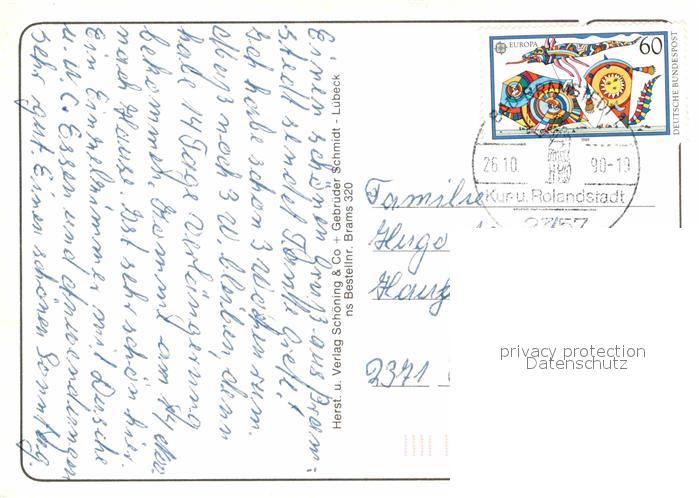 Einen schönen Gruß aus Bram-
stedt sendet Tante Grete!
Ich habe schon 3 Wochen rum.
Muß noch 3 W. bleiben, denn
habe 14 Tage Verlängerung
bekommen, komme am 14. Nov.
nach Hause. Ist sehr schön hier.
Ein Einzelzimmer mit Dusche
u. W.C. Essen und Anwendungen
sehr gut. Einen schönen Sonntag.
Herst. u. Verlag Schöning & Co + Gebrüder Schmidt - Lübeck
ns Bestellnr. Brams 320
EUROPA
60
DEUTSCHE BUNDESPOST
BRAMST
26.10. 90-19
Kur- u. Rolandstadt
2357
Familie
Hugo
2371
privacy protection
Datenschutz